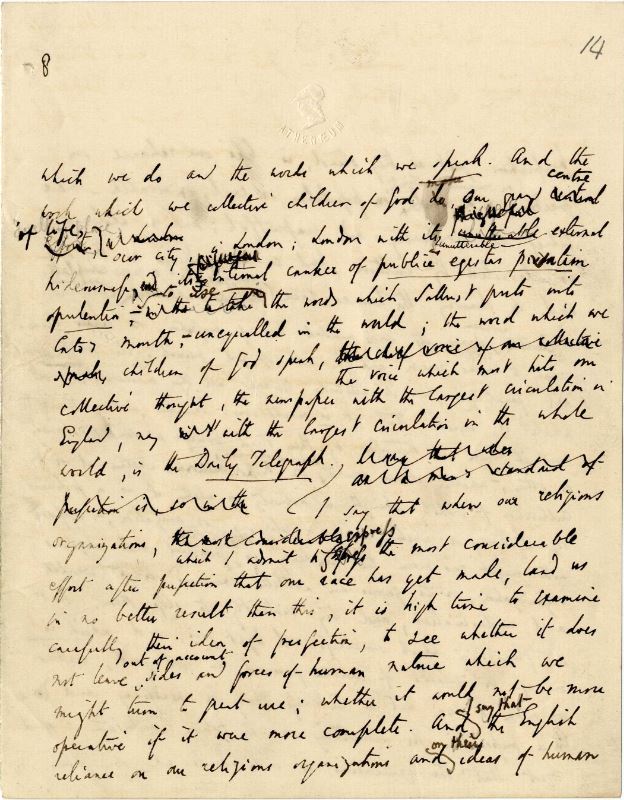 8
14
ATHENÆUM
which we do and the words which we speak. And the
work which we collective children of God do, our grand centre
central
of life, our city is London; London with its unutterable external
hideousness, and its internal canker of publice egestas privatim
opulentia, the words which Sallust puts into
Cato's mouth, unequalled in the world; the word which we
children of God speak, the chief voice of our collective
the voice which most hits our
collective thought, the newspaper with the largest circulation in
England, nay with the largest circulation in the whole
world, is the Daily Telegraph.
perfection is, so in the I say that when our religious
organizations, the most considerable express
which I admit to express the most considerable
effort after perfection that our race has yet made, land us
in no better result than this, it is high time to examine
carefully their idea of perfection, to see whether it does
not leave out of account sides and forces of human nature which we
might turn to great use; whether it would not be more
operative if it were more complete. And I say that the English
reliance on our religious organizations and on their ideas of human